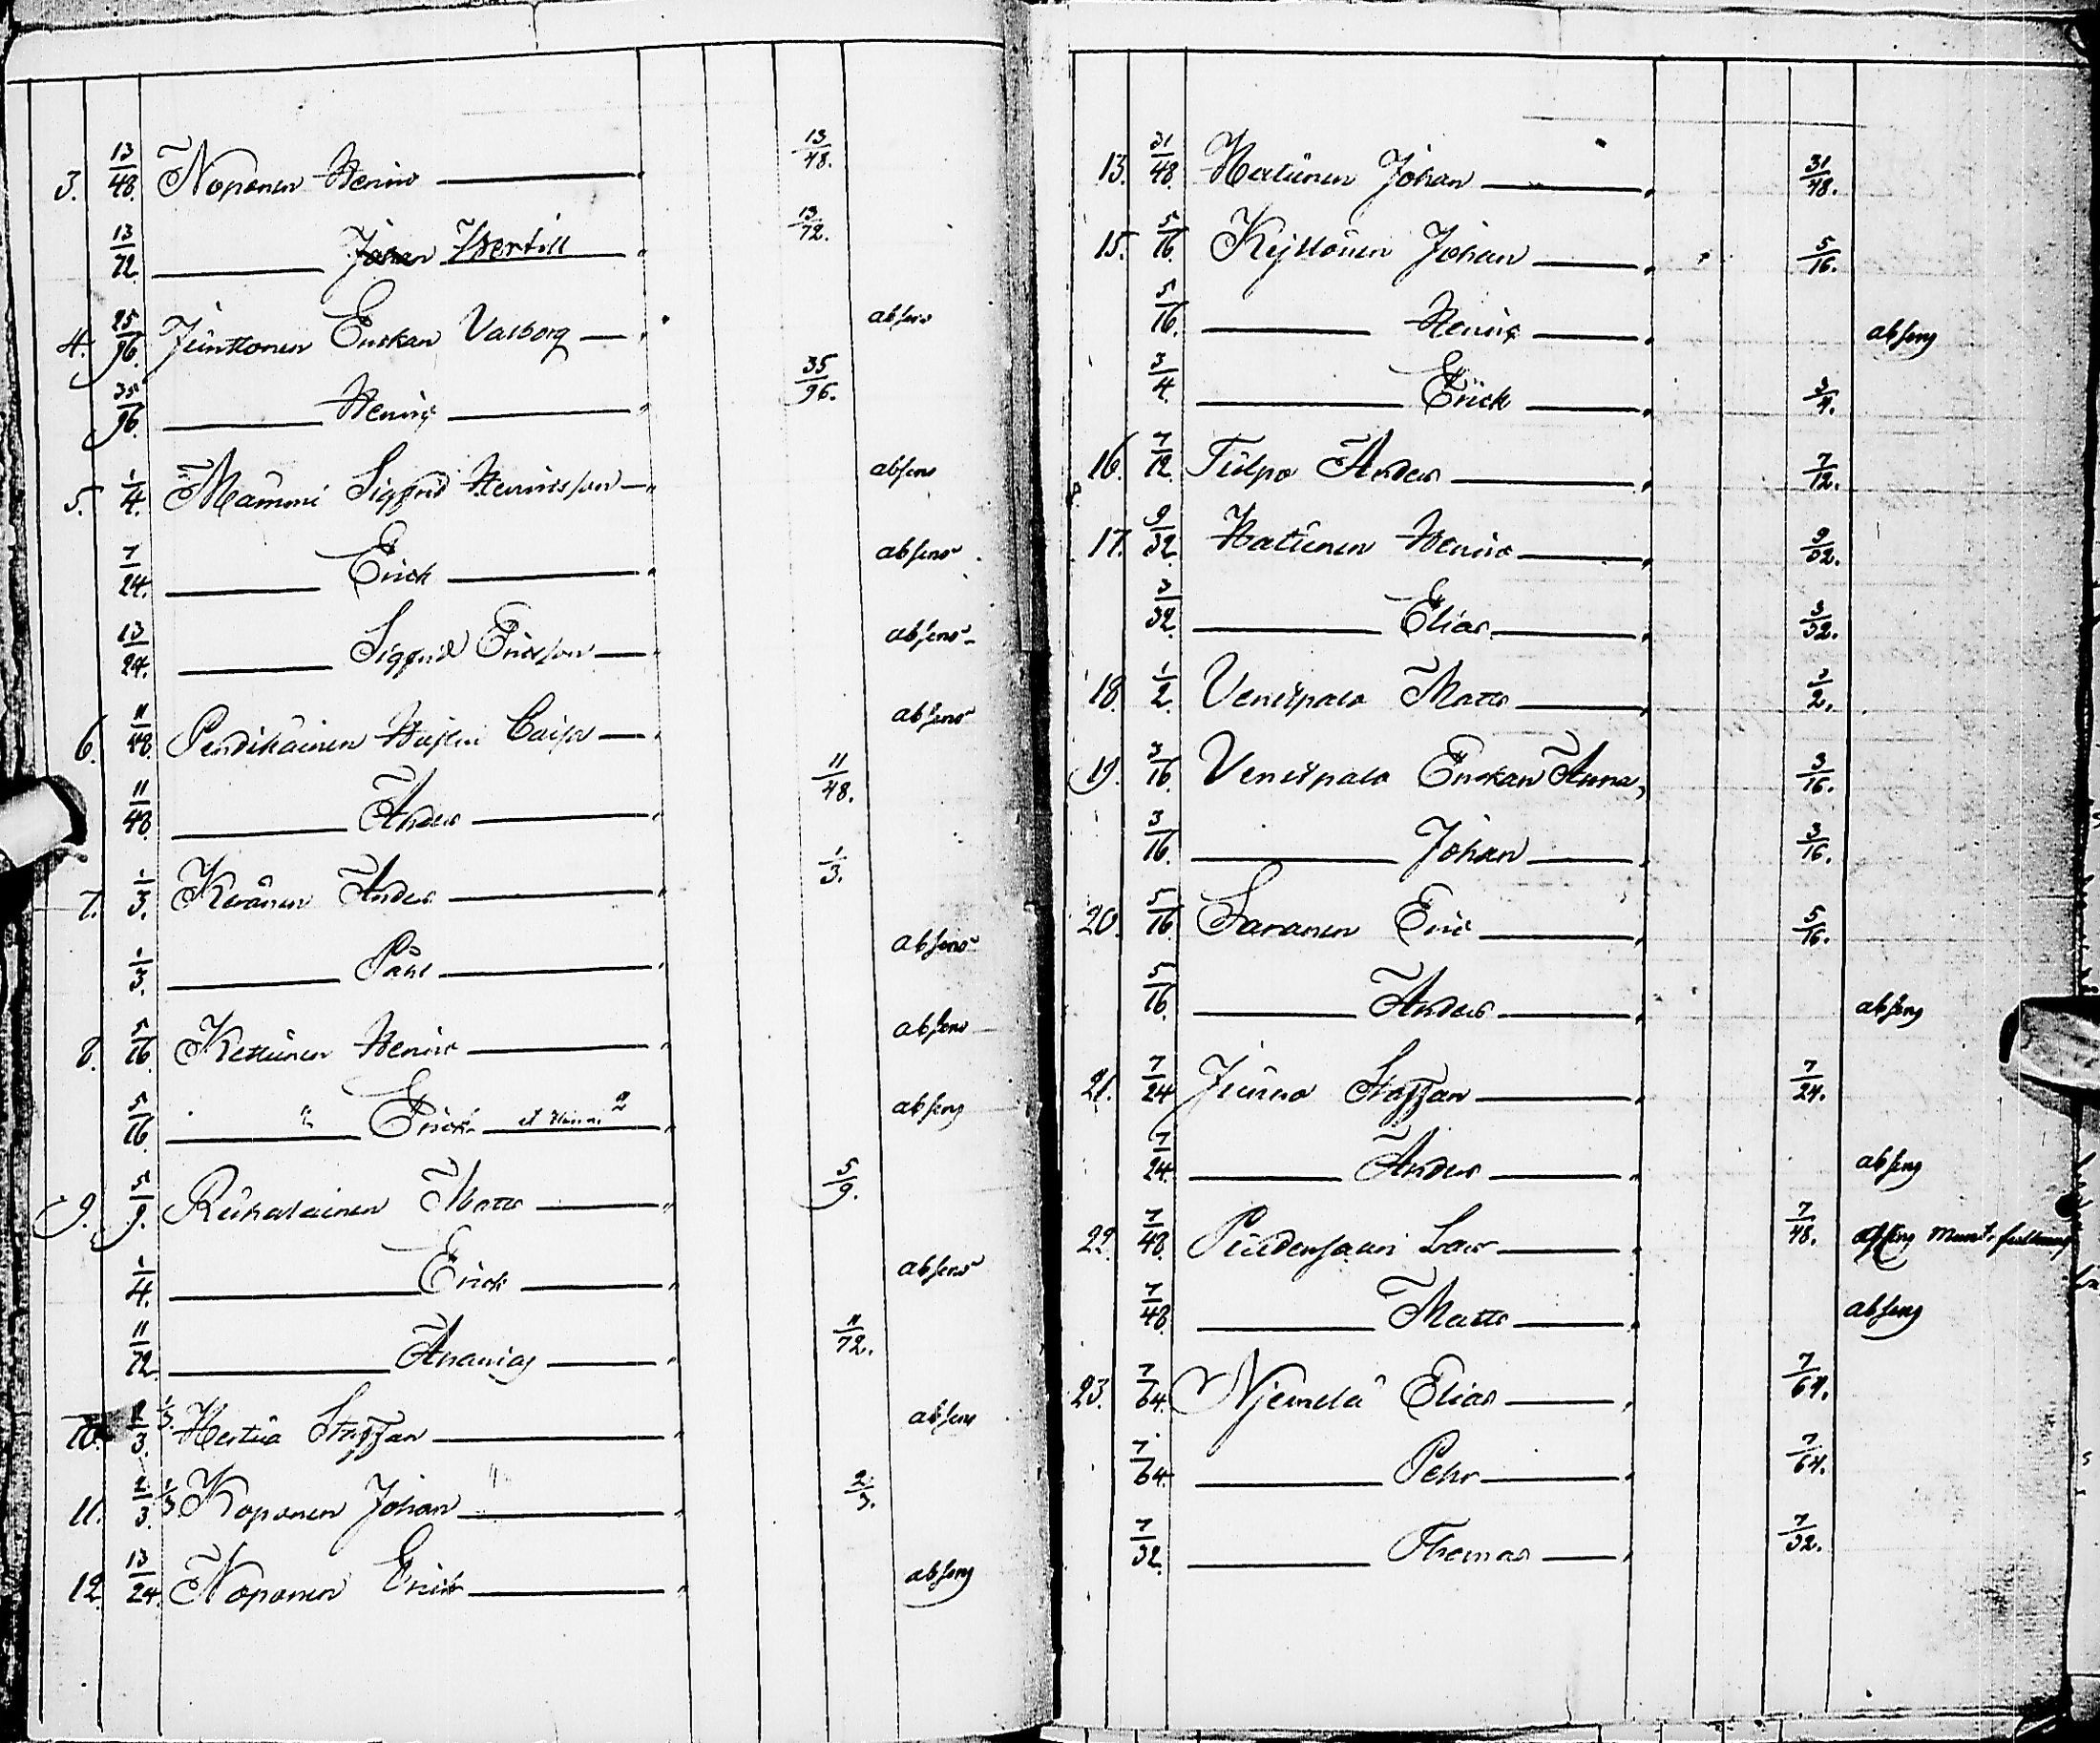 3. 13/48. Noponen Henric 13/48.
13/72. Johan Bertill 13/72.
4. 25/96. Junttonen Enckan Valborg absens
35/96. Henric 35/96.
5. 1/4. Mämmi Sigfrid Henricsson absens
7/24. Erick absens
13/24. Sigfrid Ericsson absens
6. 11/48. Pendikäinen Caisa absens
11/48. Anders 11/48.
7. 1/3. Keränen Anders 1/3.
1/3. Påhl absens
8. 5/16. Kettunen Henric absens
5/16. " Erick absens
9. 5/9. Reikalainen Matts 5/9.
1/4. Erick absens
11/72. Ananias 11/72.
10. 2/3. 1/3. Hertua Staffan absens
11. 2/3. Koponen Johan 2/3.
12. 13/24. Noponen Erick absens
13. 31/48. Hartunen Johan 31/48.
15. 5/16. Kyllönen Johan 5/16.
5/16. Henric absens
3/4. Erick 3/4.
16. 7/12. Tulpo Anders 7/12.
17. 9/32. Hatunen Henric 9/32.
3/32. Elias 3/32.
18. 1/2. Venespalo Matts 1/2.
19. 3/16. Venespalo Enckan Anna 3/16.
3/16. Johan 3/16.
20. 5/16. Saranen Eric 5/16.
5/16. Anders absens
21. 7/24. Juuno Staffan 7/24.
7/24. Anders absens
22. 7/48. Lars 7/48. absens
7/48. Matts absens
23. 7/64. Njemelä Elias 7/64.
7/64. Pehr 7/64.
7/32. Thomas 7/32.